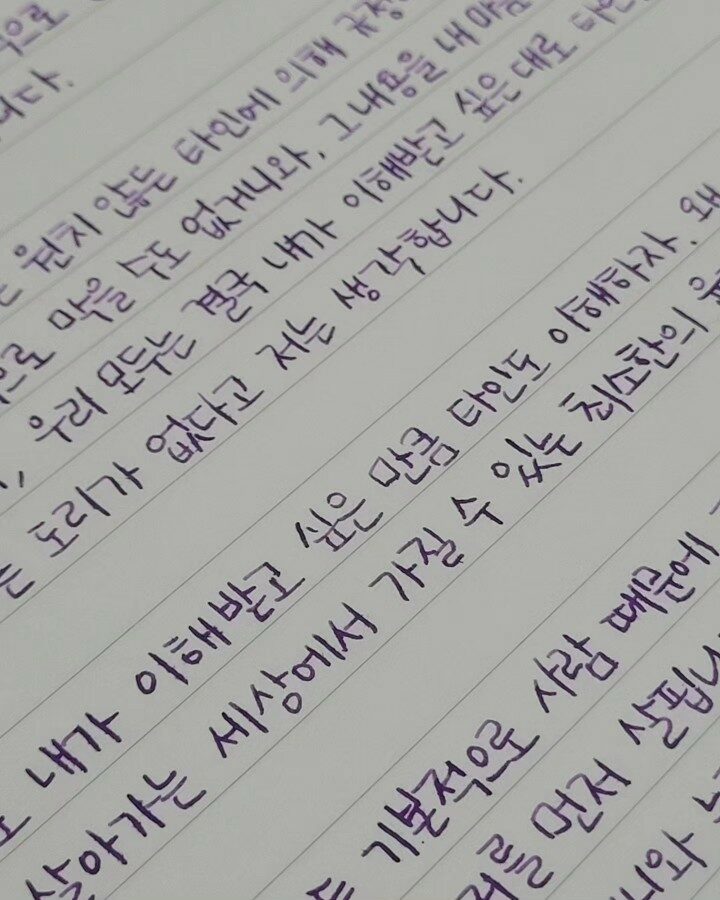 으로
니다.
원치 않는 타인에 의해 규정
으로 막을 수도 없거니와, 그 내용을 내 마음
, 우리 모두는 결국 내가 이해받고 싶은 대로 타인
는 도리가 없다고 저는 생각합니다.
내가 이해받고 싶은 만큼 타인도 이해하자. 왜
살아가는 세상에서 가질 수 있는 최소한의
는 기본적으로 사람 때문에
를 먼저 살핍니